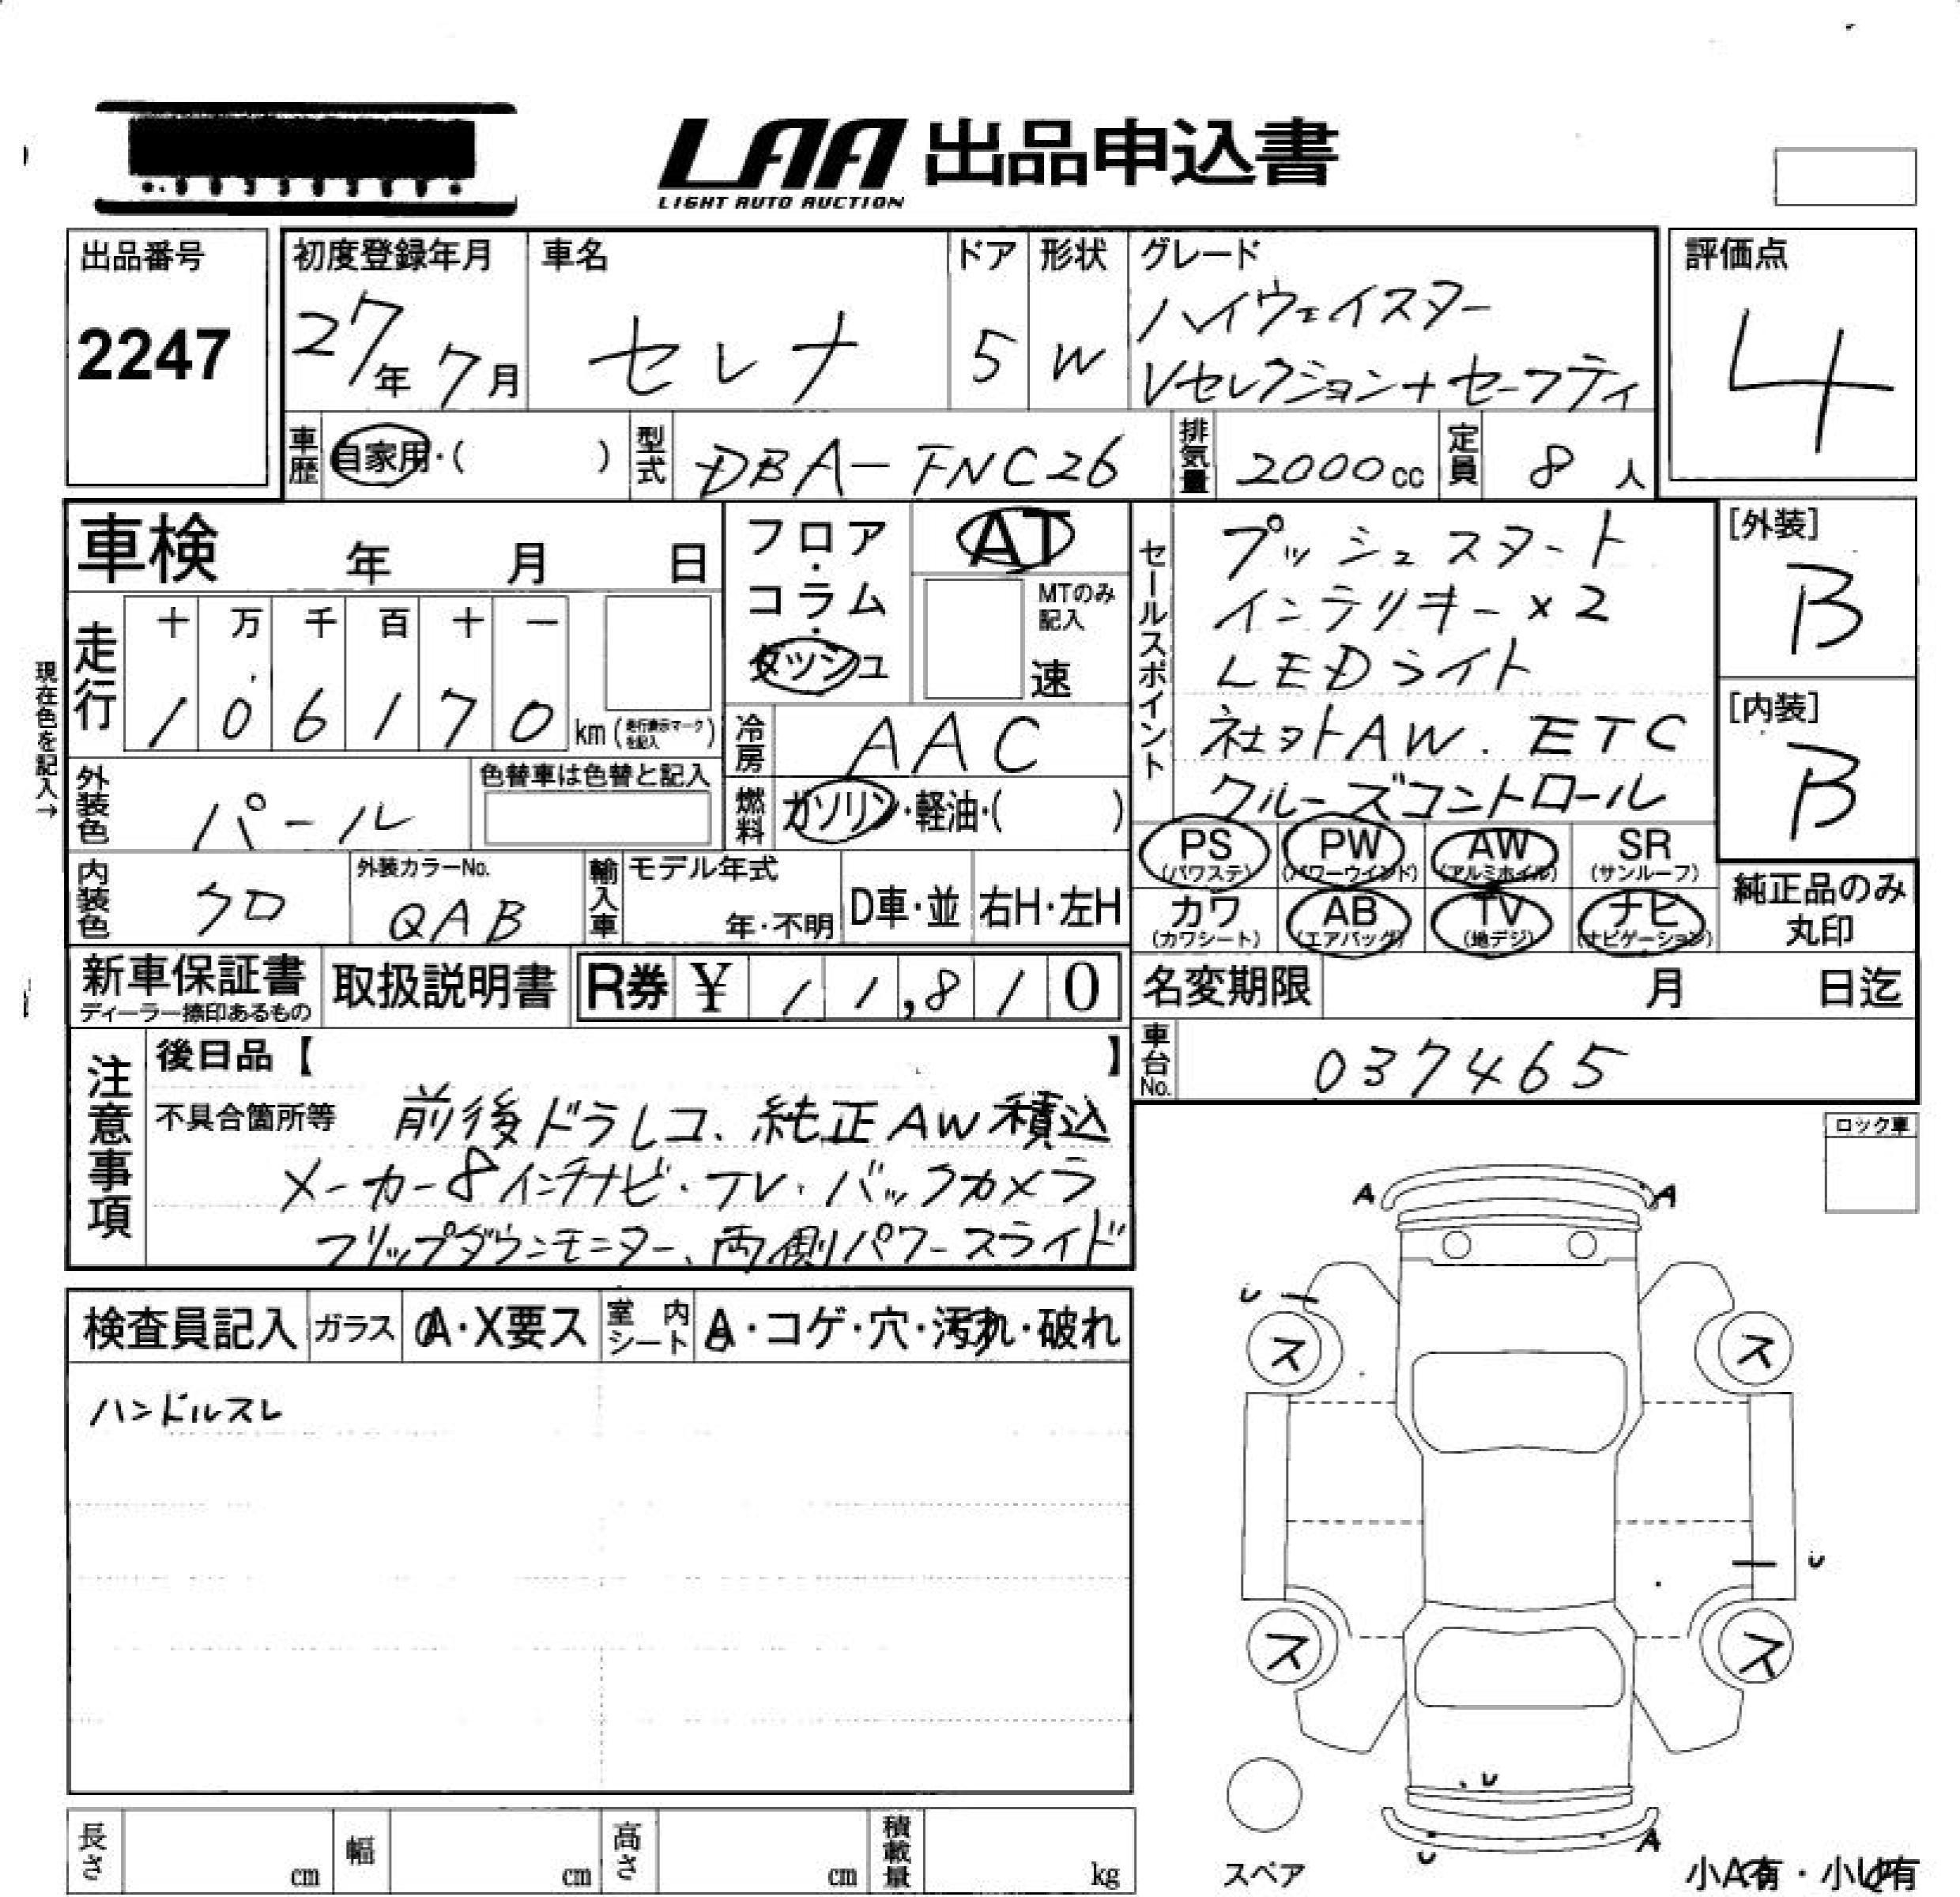 LAA 出品申込書
LIGHT AUTO AUCTION
出品番号
2247
初度登録年月
27年 7月
車名
セレナ
ドア
5
形状
W
グレード
ハイウェイスター
Vセレクション+セーフティ
評価点
4
車歴 自家用・( )
型式 DBA-FNC26
排気量 2000cc
定員 8人
車検 年 月 日
フロア・コラム・ダッシュ
AT
MTのみ記入
速
セールスポイント
プッシュスタート
インテリキー×2
LEDライト
社外AW. ETC
クルーズコントロール
[外装]
B
[内装]
B
現在色を記入→
走行
十 万 千 百 十 一
1 0 6 1 7 0 km (走行表示マークを記入)
冷房 AAC
外装色 パール
色替車は色替と記入
燃料 ガソリン・軽油・( )
内装色 クロ
外装カラーNo.
QAB
輸入車 モデル年式
年・不明
D車・並
右H・左H
PS (パワステ)
PW (パワーウインド)
AW (アルミホイル)
SR (サンルーフ)
カワ (カワシート)
AB (エアバッグ)
TV (地デジ)
ナビ (ナビゲーション)
純正品のみ
丸印
新車保証書
ディーラー捺印あるもの
取扱説明書
R券 ¥ 11,810
名変期限 月 日迄
車台No. 037465
注意事項
後日品【 】
不具合箇所等 前後ドラレコ、純正AW積込
メーカー8インチナビ・TV・バックカメラ
フリップダウンモニター、両側パワースライド
ロック車
検査員記入
ガラス A・X要ス
室内シート A・コゲ・穴・汚れ・破れ
ハンドルスレ
A A
U
ス ス
U
ス ス
U
A
U
スペア
小A有・小U有
長さ cm
幅 cm
高さ cm
積載量 kg